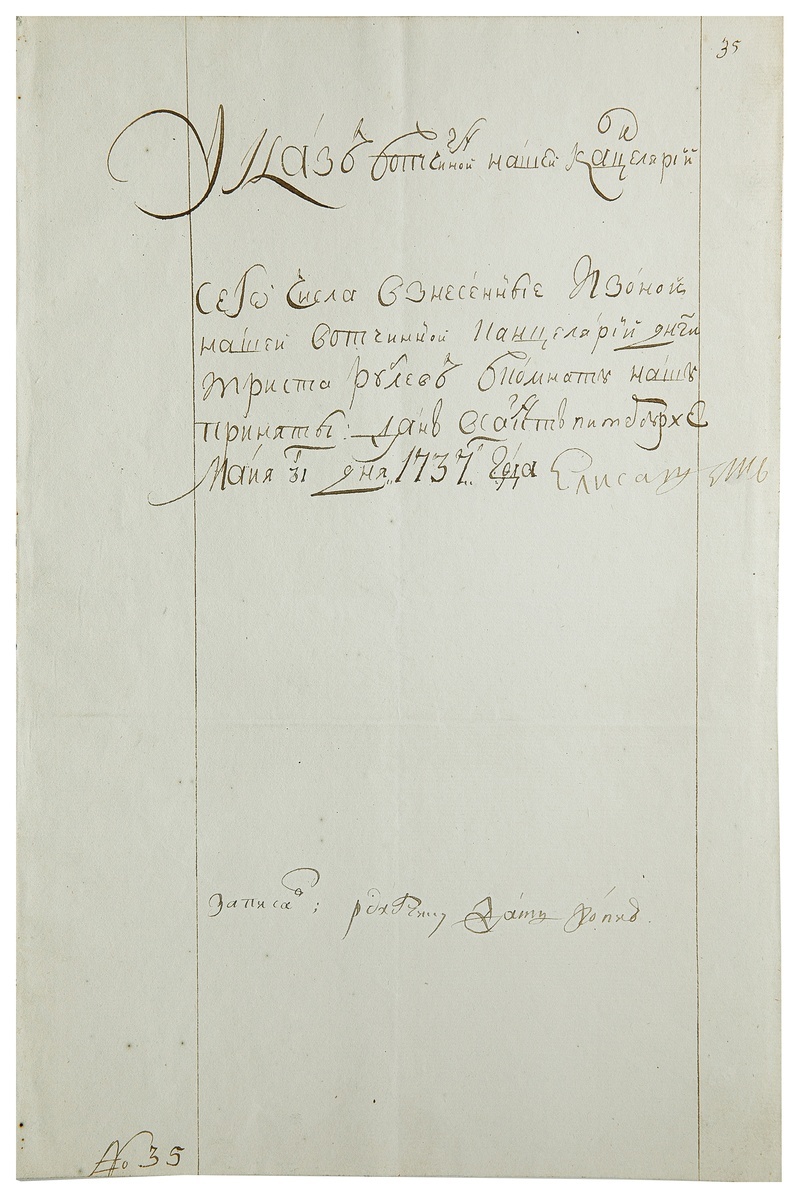 35
Указъ вотчинной нашей канцелярїи
Сего числа взнесенные изоной
нашей вотчинной канцелярїи днги
триста рублевъ вкомнату нашу
приняты: данъ всанктъпитербурхе
Майя 31 дня 1737 года Елисаветъ
Записавъ;
дать копию
№ 35